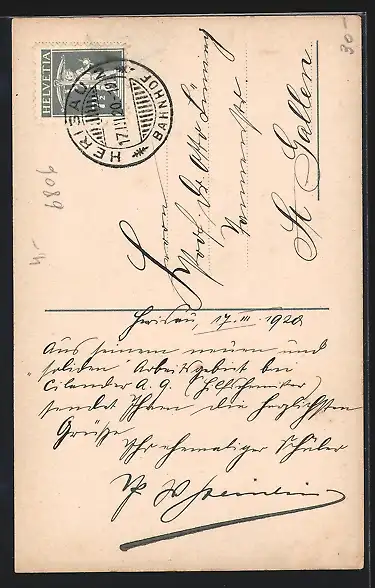 HELVETIA
7½
HERISAU
17.III.20
BAHNHOF
30.-
9089
4.-
Herrn
Prof. Dr. Otto
St. Gallen
Herisau, 17. III. 1920
Aus seinem neuen und
soliden Arbeitsgebiet bei
Cilander A. G. (Hilfschemiker)
sendet Ihnen die herzlichsten
Grüsse
Ihr ehemaliger Schüler